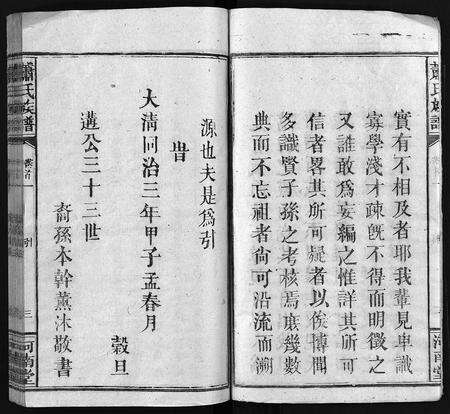 蕭氏族譜
實有不相及者耶我輩見卑識
寡學淺才疎旣不得而明徵之
又誰敢爲妄編之惟詳其所可
信者畧其所可疑者以俟博聞
多識賢子孫之考核焉庶幾數
典而不忘祖者尙可沿流而溯
河南堂
源也夫是爲引
旹
大淸同治三年甲子孟春月
穀旦
遴公三十三世
裔孫本幹薰沐敬書
蕭氏族譜
卷首
引
三
河南堂